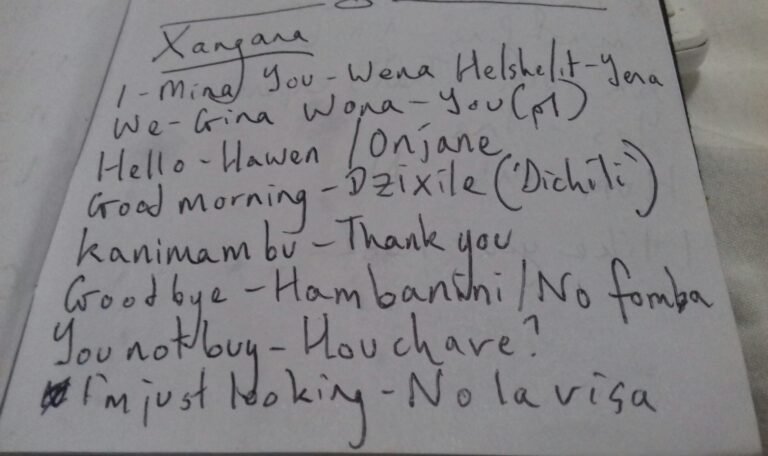 Xangana
I-Mina You-Wena He/she/it-Yena
We-Gina Wona-You(pl)
Hello-Hawen /Onjane
Good morning-Dzixile ('Dichili')
Kanimambu-Thank you
Goodbye-Hambanini/No fomba
You not buy-Hou chave?
I'm just looking-No la visa